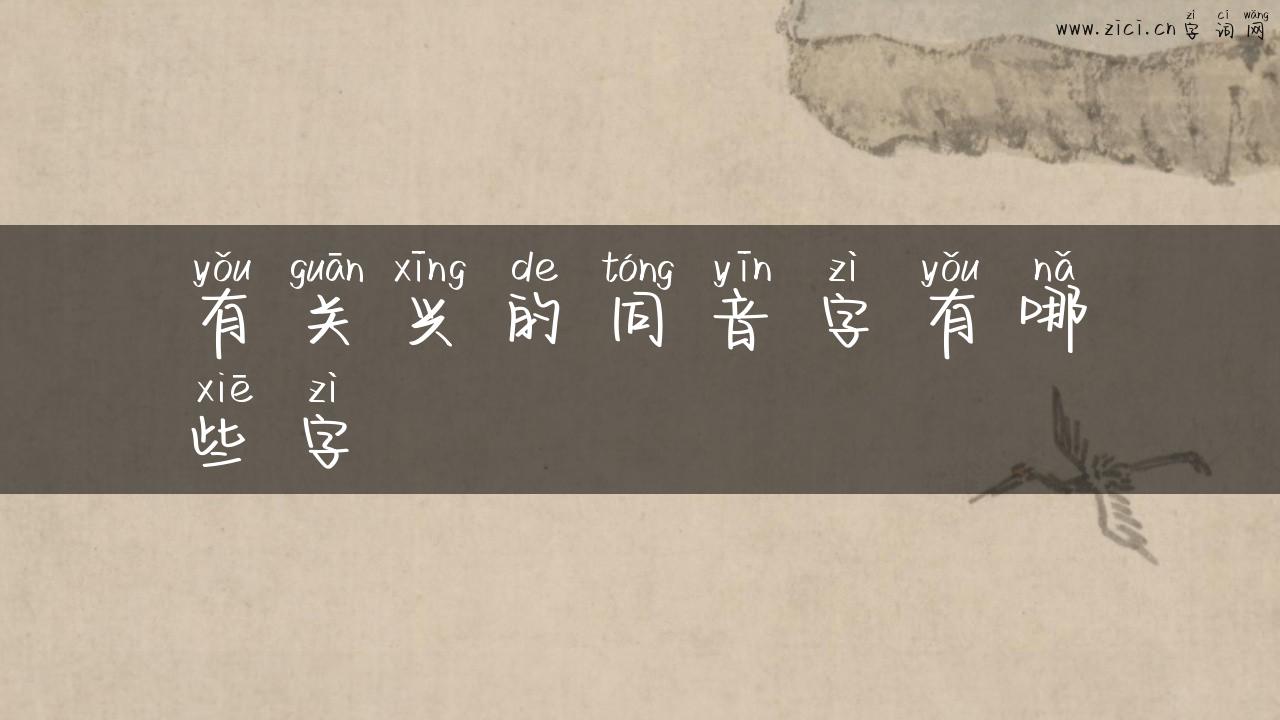 zì cí wǎng
www.zici.cn 字 词 网
yǒu guān xīng de tóng yīn zì yǒu nǎ
有 关 兴 的 同 音 字 有 哪
xiē zì
些 字